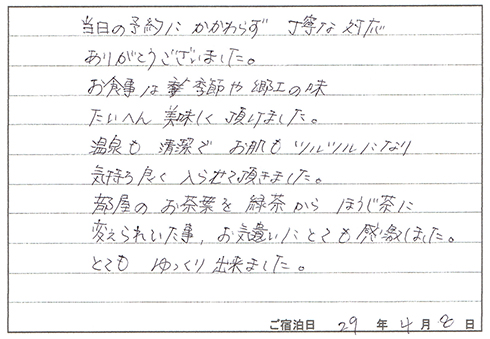 当日の予約にかかわらず 丁寧な対応
ありがとうございました。
お食事は 季節や郷土の味
たいへん 美味しく 頂けました。
温泉も 清潔で お肌も ツルツルになり
気持ち良く 入らせて頂きました。
部屋の お茶葉を 緑茶から ほうじ茶に
変えられていた事、お気遣いにとても感激しました。
とても ゆっくり 出来ました。
ご宿泊日 29 年 4 月 8 日